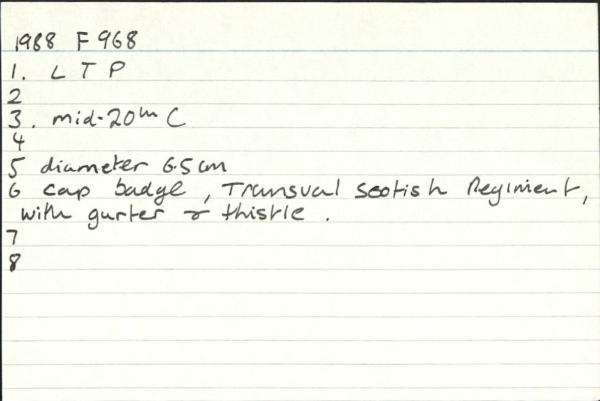 1988 F 968
1. L T P
2
3. mid-20th C
4
5 diameter 6.5 cm
6 cap badge, Transval Scotish Regiment,
with garter & thistle.
7
8